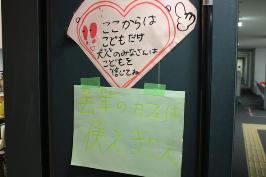 ここからは
こどもだけ
大人のみなさんは
こどもを
信じてね
去年のカブは
使えません